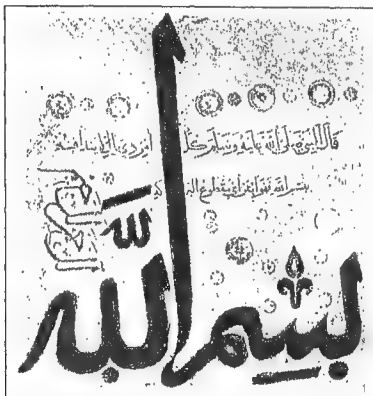 قال النبي صلى الله عليه وسلم كل امر ذي بال لم يبدا فيه
بسم الله فهو ابتر اي مقطوع البركة
بسم الله
1